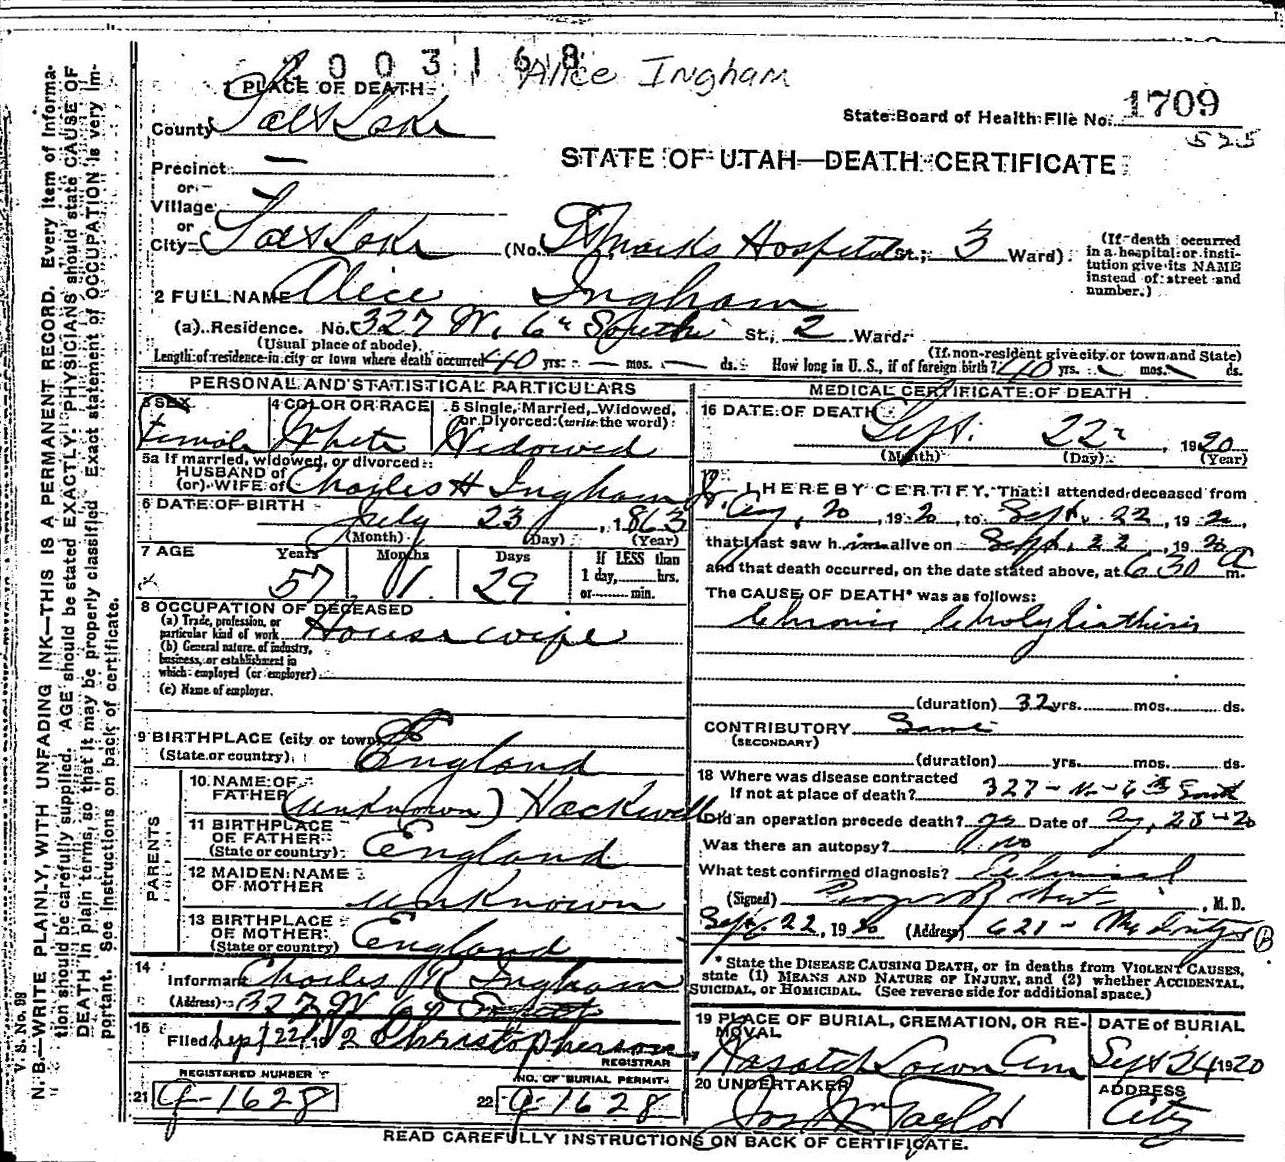 2003168 Alice Ingham
1 PLACE OF DEATH
State Board of Health File No. 1709
County Salt Lake
525
STATE OF UTAH—DEATH CERTIFICATE
Precinct —
or
Village
or
City Salt Lake (No. St Marks Hospital St.; 3 Ward)
(If death occurred in a hospital or institution give its NAME instead of street and number.)
2 FULL NAME Alice Ingham
(a) Residence. No. 327 W. 6th South St., 2 Ward.
(Usual place of abode) (If non-resident give city or town and State)
Length of residence in city or town where death occurred 40 yrs. — mos. — ds. How long in U.S., if of foreign birth? 40 yrs. mos. ds.
PERSONAL AND STATISTICAL PARTICULARS
3 SEX Female
4 COLOR OR RACE White
5 Single, Married, Widowed, or Divorced (write the word) Widowed
5a If married, widowed, or divorced
HUSBAND of
(or) WIFE of Charles H Ingham Jr.
6 DATE OF BIRTH July 23, 1863
(Month) (Day) (Year)
7 AGE Years 57 Months 1 Days 29 If LESS than
1 day, hrs.
or min.
8 OCCUPATION OF DECEASED
(a) Trade, profession, or
particular kind of work Housewife
(b) General nature of industry,
business, or establishment in
which employed (or employer)
(c) Name of employer.
9 BIRTHPLACE (city or town)
(State or country) England
PARENTS
10 NAME OF
FATHER (unknown) Hackwell
11 BIRTHPLACE
OF FATHER
(State or country) England
12 MAIDEN NAME
OF MOTHER unknown
13 BIRTHPLACE
OF MOTHER
(State or country) England
14
Informant Charles M Ingham
(Address) 327 W 6th
15
Filed Sept 22, 192 Christopherson
REGISTRAR
REGISTERED NUMBER
21 G-1628
NO. OF BURIAL PERMIT
22 G-1628
MEDICAL CERTIFICATE OF DEATH
16 DATE OF DEATH Sept. 22, 1920
(Month) (Day) (Year)
17 I HEREBY CERTIFY, That I attended deceased from
Aug, 20, 1920, to Sept. 22, 1920,
that I last saw him alive on Sept. 22, 1920
and that death occurred, on the date stated above, at 630 A m.
The CAUSE OF DEATH* was as follows:
Chronic Cholylithisis
(duration) 32 yrs. mos. ds.
CONTRIBUTORY Same
(SECONDARY)
(duration) yrs. mos. ds.
18 Where was disease contracted
If not at place of death? 327 - W - 6th South
Did an operation precede death? yes Date of Aug, 28-20
Was there an autopsy? no
What test confirmed diagnosis? Clinical
(Signed) , M.D.
Sept 22, 1920 (Address) 621 - McIntyre B
* State the DISEASE CAUSING DEATH, or in deaths from VIOLENT CAUSES,
state (1) MEANS AND NATURE OF INJURY, and (2) whether ACCIDENTAL,
SUICIDAL, or HOMICIDAL. (See reverse side for additional space.)
19 PLACE OF BURIAL, CREMATION, OR REMOVAL Wasatch Lawn Cem
DATE of BURIAL Sept 24 1920
20 UNDERTAKER Jos Wm Taylor
ADDRESS City
READ CAREFULLY INSTRUCTIONS ON BACK OF CERTIFICATE.
V. S. No. 98
N. B.—WRITE PLAINLY, WITH UNFADING INK—THIS IS A PERMANENT RECORD. Every item of Information should be carefully supplied. AGE should be stated EXACTLY. PHYSICIANS should state CAUSE OF
DEATH in plain terms, so that it may be properly classified. Exact statement of OCCUPATION is very important. See instructions on back of certificate.